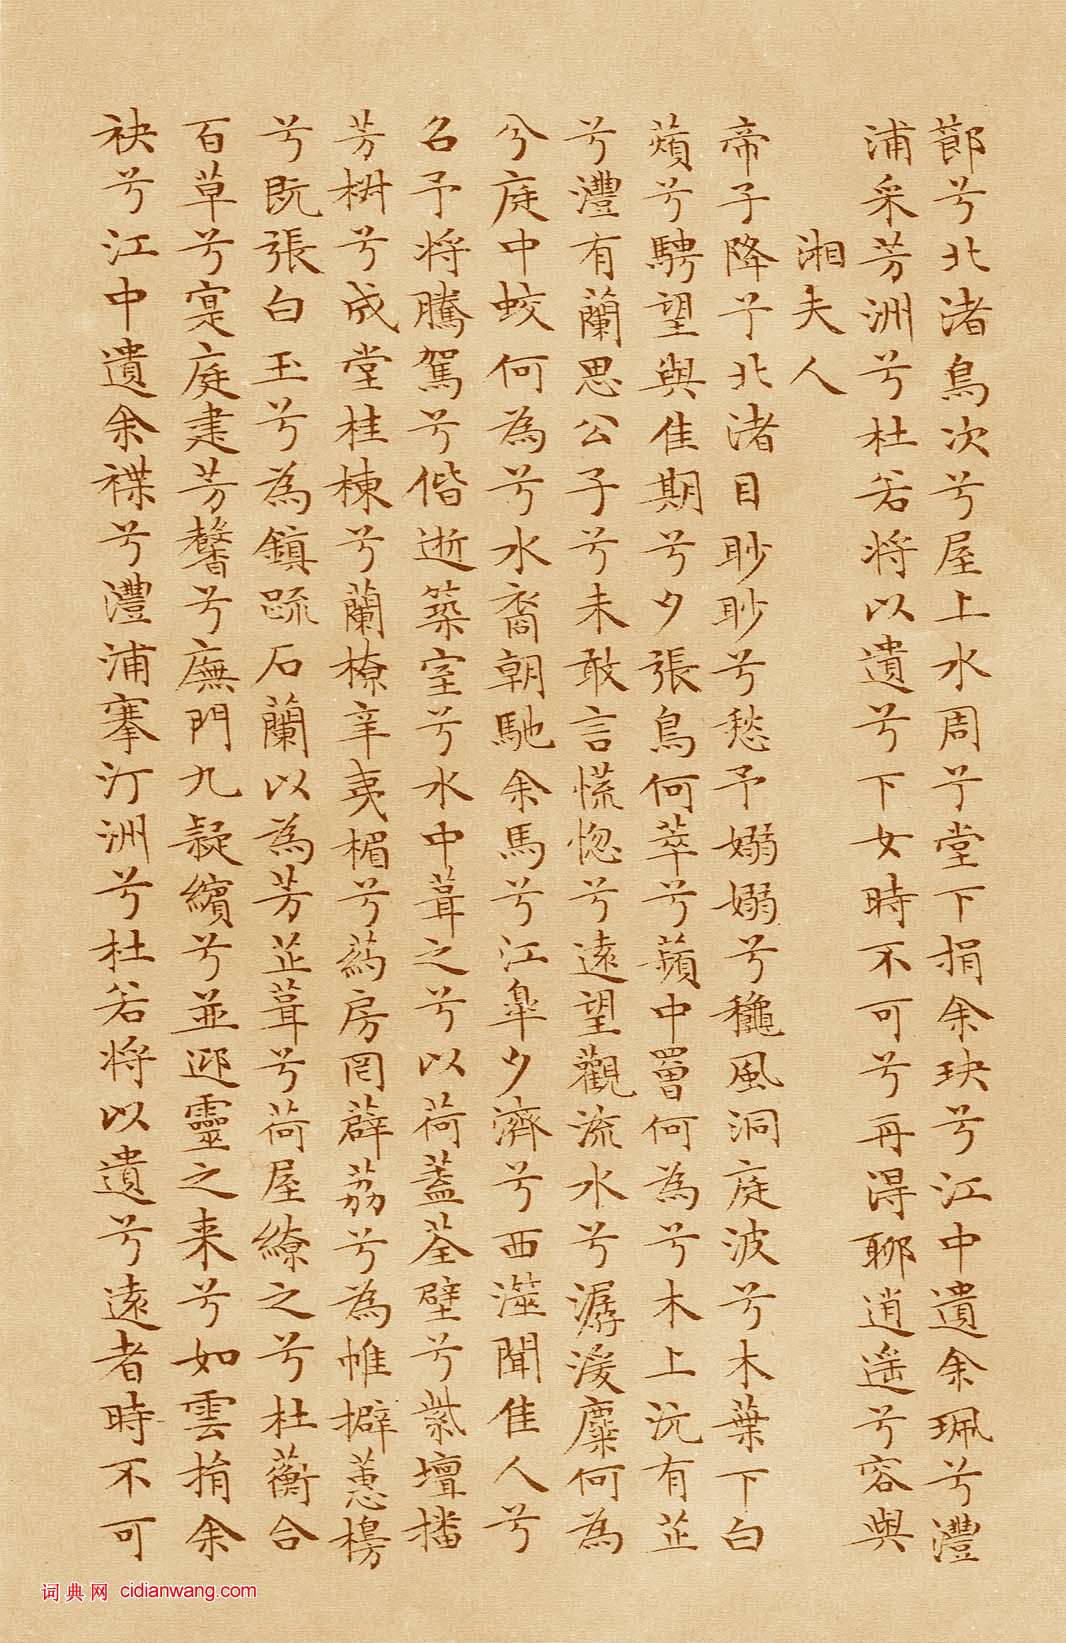 莭兮北渚鳥次兮屋上水周兮堂下捐余玦兮江中遺余珮兮澧
浦采芳洲兮杜若将以遺兮下女時不可兮再得聊逍遥兮容與
湘夫人
帝子降兮北渚目眇眇兮愁予嫋嫋兮龝風洞庭波兮木葉下白
薠兮騁望與佳期兮夕張鳥何萃兮蘋中罾何為兮木上沅有芷
兮澧有蘭思公子兮未敢言慌惚兮遠望觀流水兮潺湲麋何為
兮庭中蛟何為兮水裔朝馳余馬兮江皋夕濟兮西澨聞佳人兮
召予将騰駕兮偕逝築室兮水中葺之兮以荷蓋荃壁兮紫壇播
芳椒兮成堂桂棟兮蘭橑辛夷楣兮葯房罔薜荔兮為帷擗蕙櫋
兮既張白玉兮為鎮疏石蘭以為芳芷葺兮荷屋繚之兮杜蘅合
百草兮實庭建芳馨兮廡門九疑繽兮並迎靈之来兮如雲捐余
袂兮江中遺余褋兮澧浦搴汀洲兮杜若将以遺兮遠者時不可
词典网 cidianwang.com